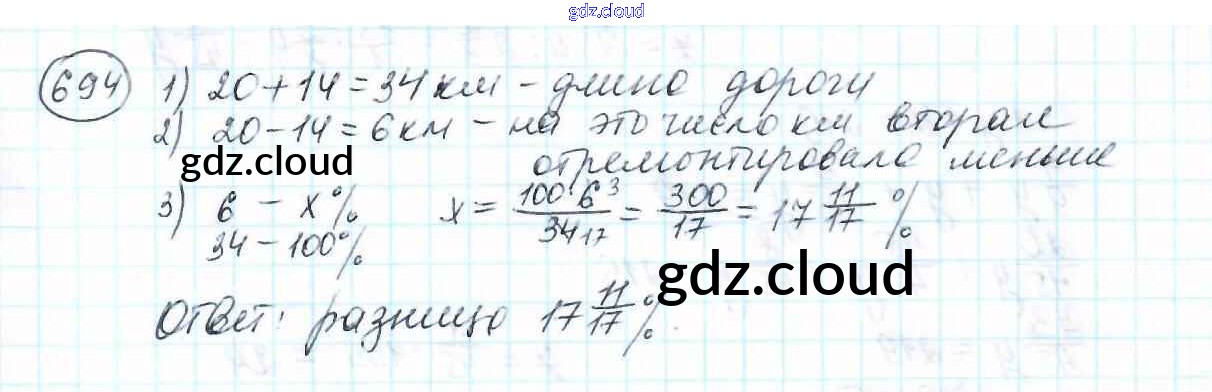 gdz.cloud
694 1) 20+14=34 км – длина дороги
2) 20-14=6 км – на это число км вторая
gdz.cloud отремонтировала меньше
3) 6 – x% x = 100·6³/34₁₇ = 300/17 = 17 11/17 %
34 – 100%
gdz.cloud
Ответ: разница 17 11/17 %.